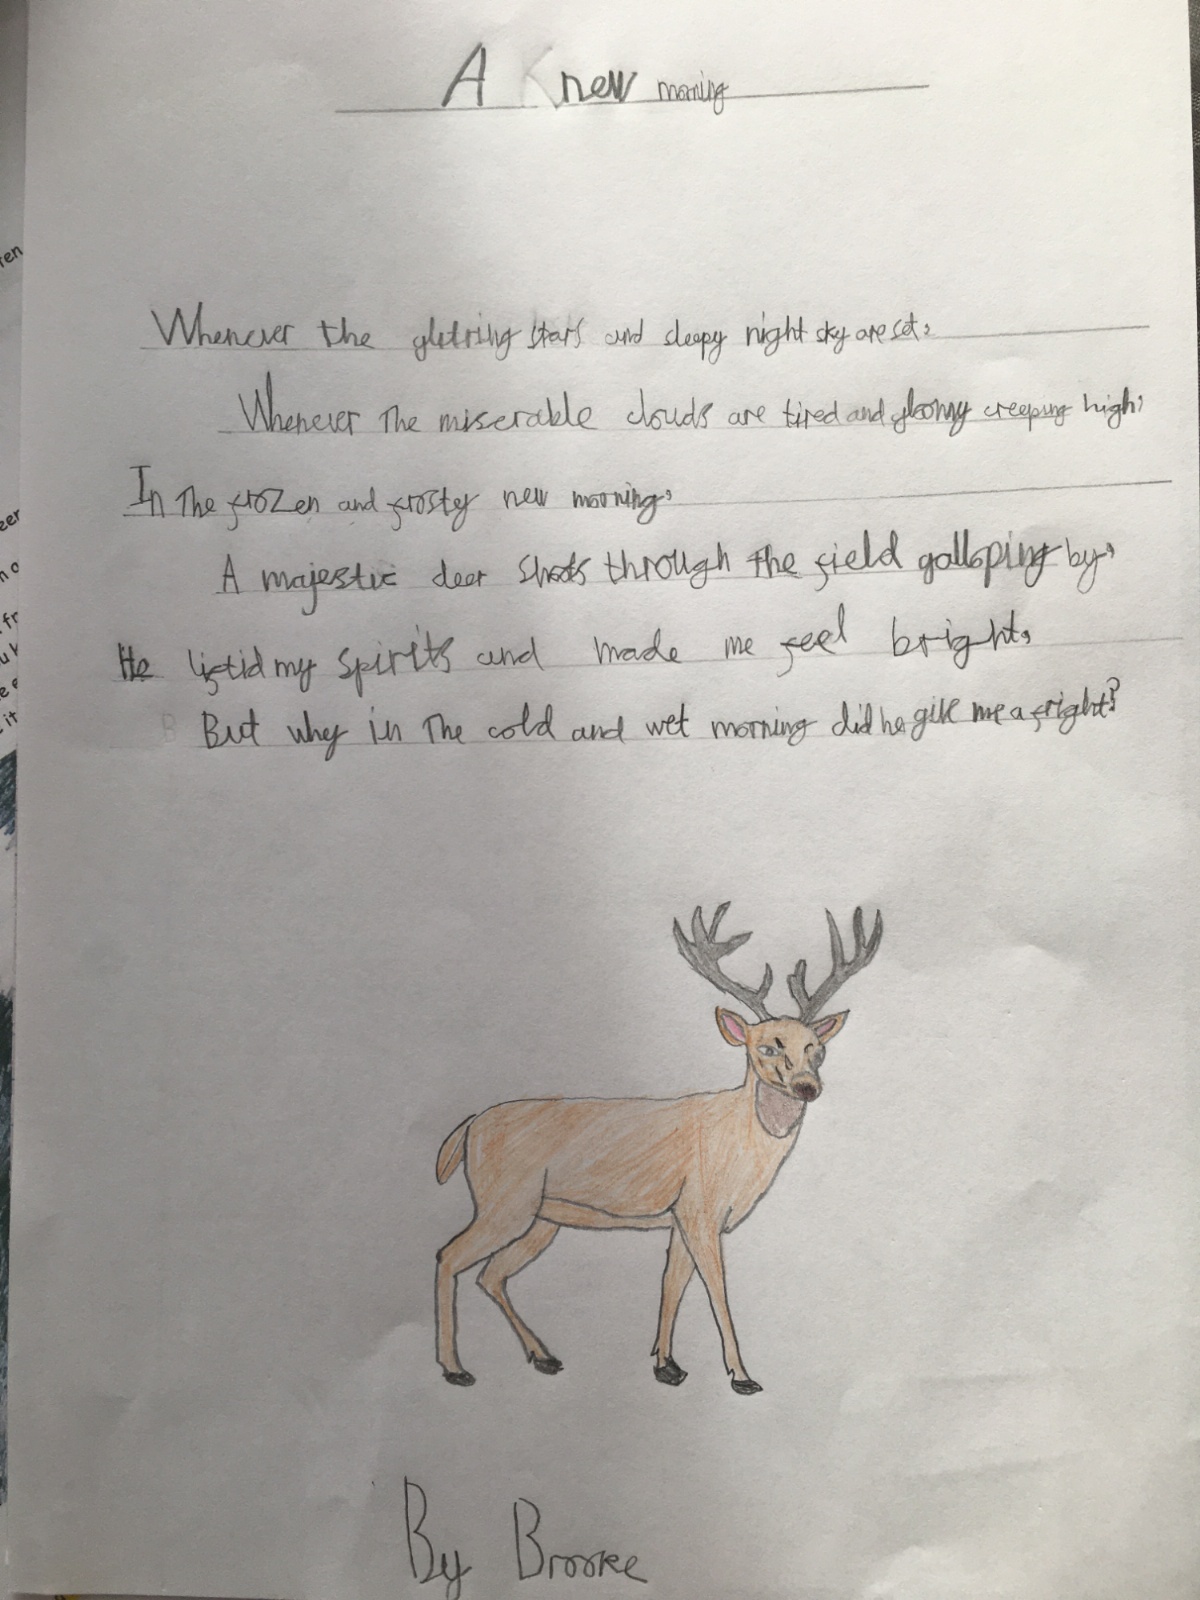 A new morning
Whenever the glittring stars and sleepy night sky are set,
Whenever The miserable clouds are tired and gloomy creeping high,
In The frozen and frosty new morning,
A majestic deer shoots through the field galloping by,
He liftid my spirits and made me feel bright,
But why in The cold and wet morning did he give me a fright?
By Brooke